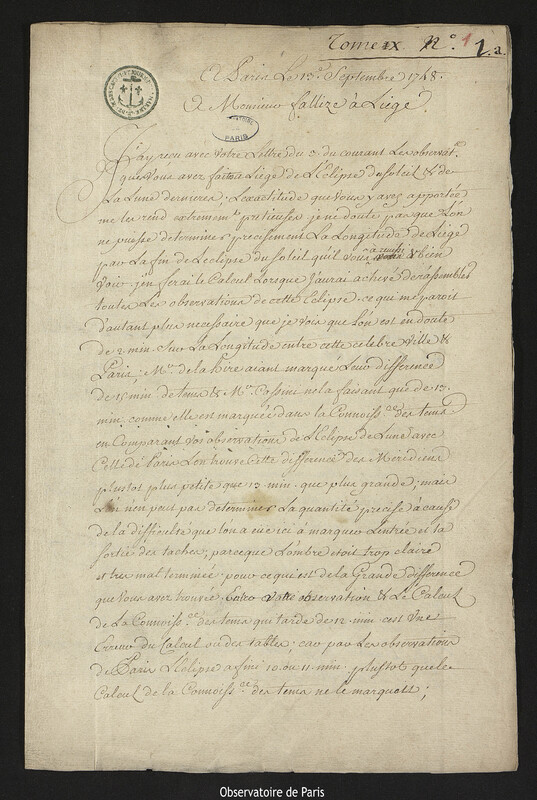 Tome IX. N.º 1 1.a.
A Paris Le 13.e Septembre 1748.
A Monsieur fallize à Liege.
PARIS
J'ay reçu avec votre Lettre du 3 du courant Les observat.ons
que vous avez faites à Liege de L'Eclipse du Soleil & de
La Lune dernieres; L'exactitude que vous y avez apportée
me les rend extremem.t pretieuses je ne doute pas que L'on
ne puisse determiner precisement La Longitude de Liege
par La fin de L'eclipse du Soleil qu'il vous a reussi de bien
voir j'en ferai le Calcul Lorsque J'aurai achevé de rassembler
toutes Les observations de cette Eclipse. ce qui me paroit
d'autant plus necessaire que je vois que L'on est en doute
de 2 min. sur La Longitude entre cette celebre Ville &
Paris; M.r de la hire aiant marqué Leur difference
de 15 min de tems & M.r Cassini ne la faisant que de 13.
min. comme elle est marquée dans la Connoiss.ce des tems
en Comparant vos observations de L'Eclipse de Lune avec
Celle de Paris L'on trouve Cette difference des Meridiens
plustot plus petite que 13 min. que plus grande; mais
L'on n'en peut pas determiner La quantité precise à cause
de la difficulté que L'on a eue ici à marquer L'entrée et la
sortie des taches; parceque L'ombre etoit trop claire
et tres mal terminée. pour ce qui est de la Grande difference
que vous avez trouvée Entre votre observation & Le Calcul
de La Connoiss.ce des tems qui tarde de 12. min. c'est une
Erreur du Calcul ou des tables; car par Les observations
de Paris L'Eclipse a fini 10 ou 11 min. plustot que le
Calcul de la Connoiss.ce des tems ne le marquoit;
Observatoire de Paris